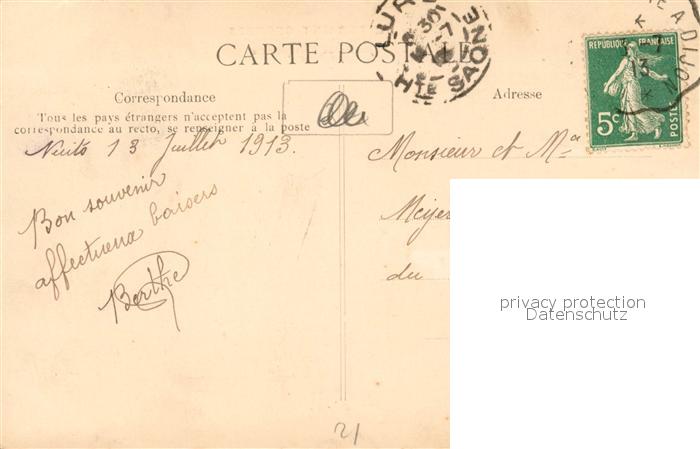 CARTE POSTALE
Correspondance
Tous les pays étrangers n'acceptent pas la
correspondance au recto, se renseigner à la poste
Nuits 13 Juillet 1913.
Bon souvenir
affectueux baisers
Berthe
Adresse
Monsieur et Ma
Meyer
du
RÉPUBLIQUE FRANÇAISE
5c
POSTES
LUR
30
7
Hte SAONE
A DIJON
13
21
privacy protection
Datenschutz